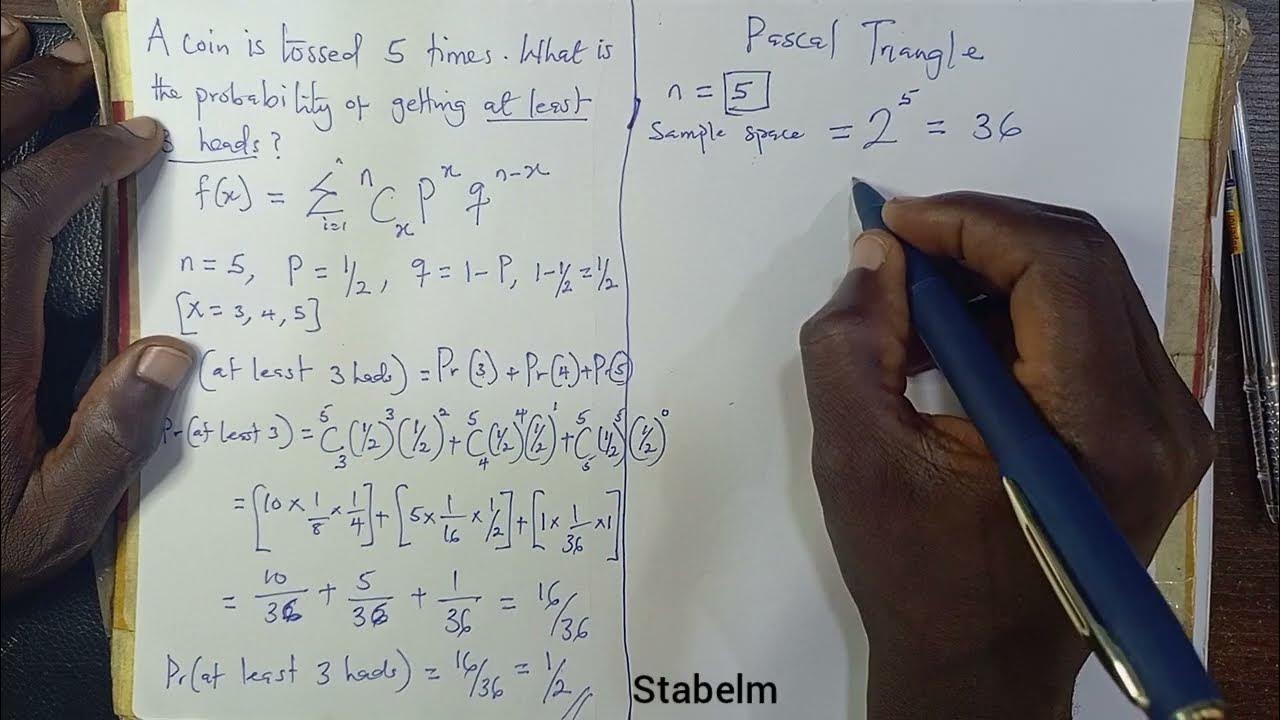 A coin is tossed 5 times. What is
the probability of getting at least
3 heads?
f(x) = Σ^n_{i=1} ^nC_x P^x q^{n-x}
n = 5, P = 1/2, q = 1 - P, 1 - 1/2 = 1/2
[x = 3, 4, 5]
(at least 3 heads) = Pr(3) + Pr(4) + Pr(5)
Pr(at least 3) = ^5C_3 (1/2)^3 (1/2)^2 + ^5C_4 (1/2)^4 (1/2)^1 + ^5C_5 (1/2)^5 (1/2)^0
= [10 × 1/8 × 1/4] + [5 × 1/16 × 1/2] + [1 × 1/36 × 1]
= 10/36 + 5/36 + 1/36 = 16/36
Pr(at least 3 heads) = 16/36 = 1/2 //
Pascal Triangle
n = 5
Sample space = 2^5 = 36
Stabelm